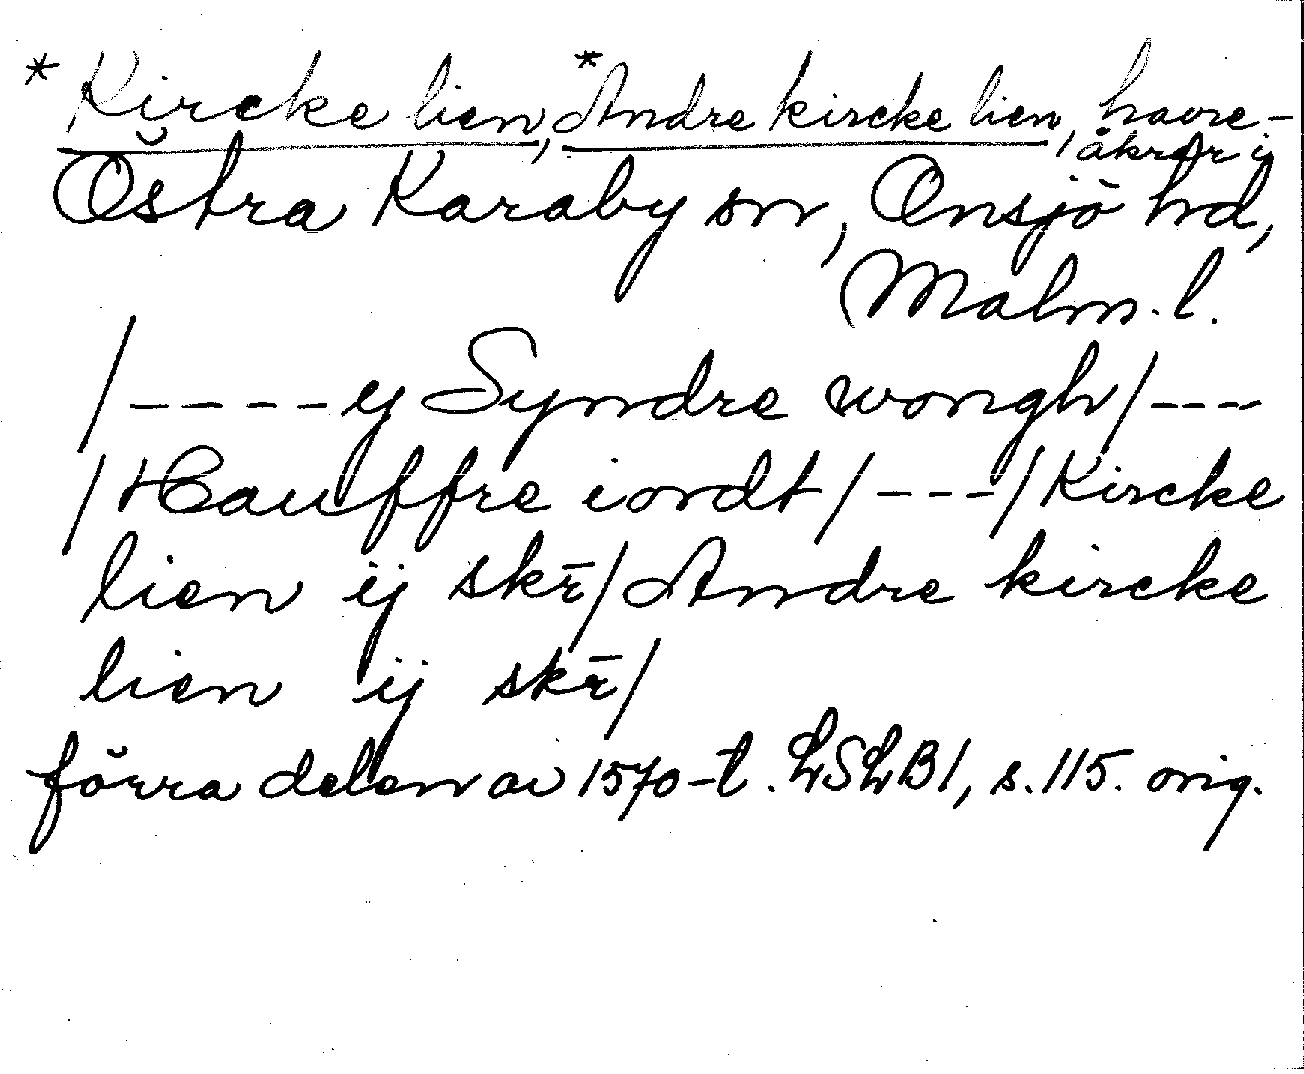 *Kircke lien, *Andre kircke lien, havre-
åkrar i
Östra Karaby sn, Onsjö hd,
Malm. l.
/----ij Syndre wongh/---
/Hauffre iordt/---/Kircke
lien ij skr̄/Andre kircke
lien ij skr̄/
förra delen av 1570-t. LSLB1, s. 115. orig.